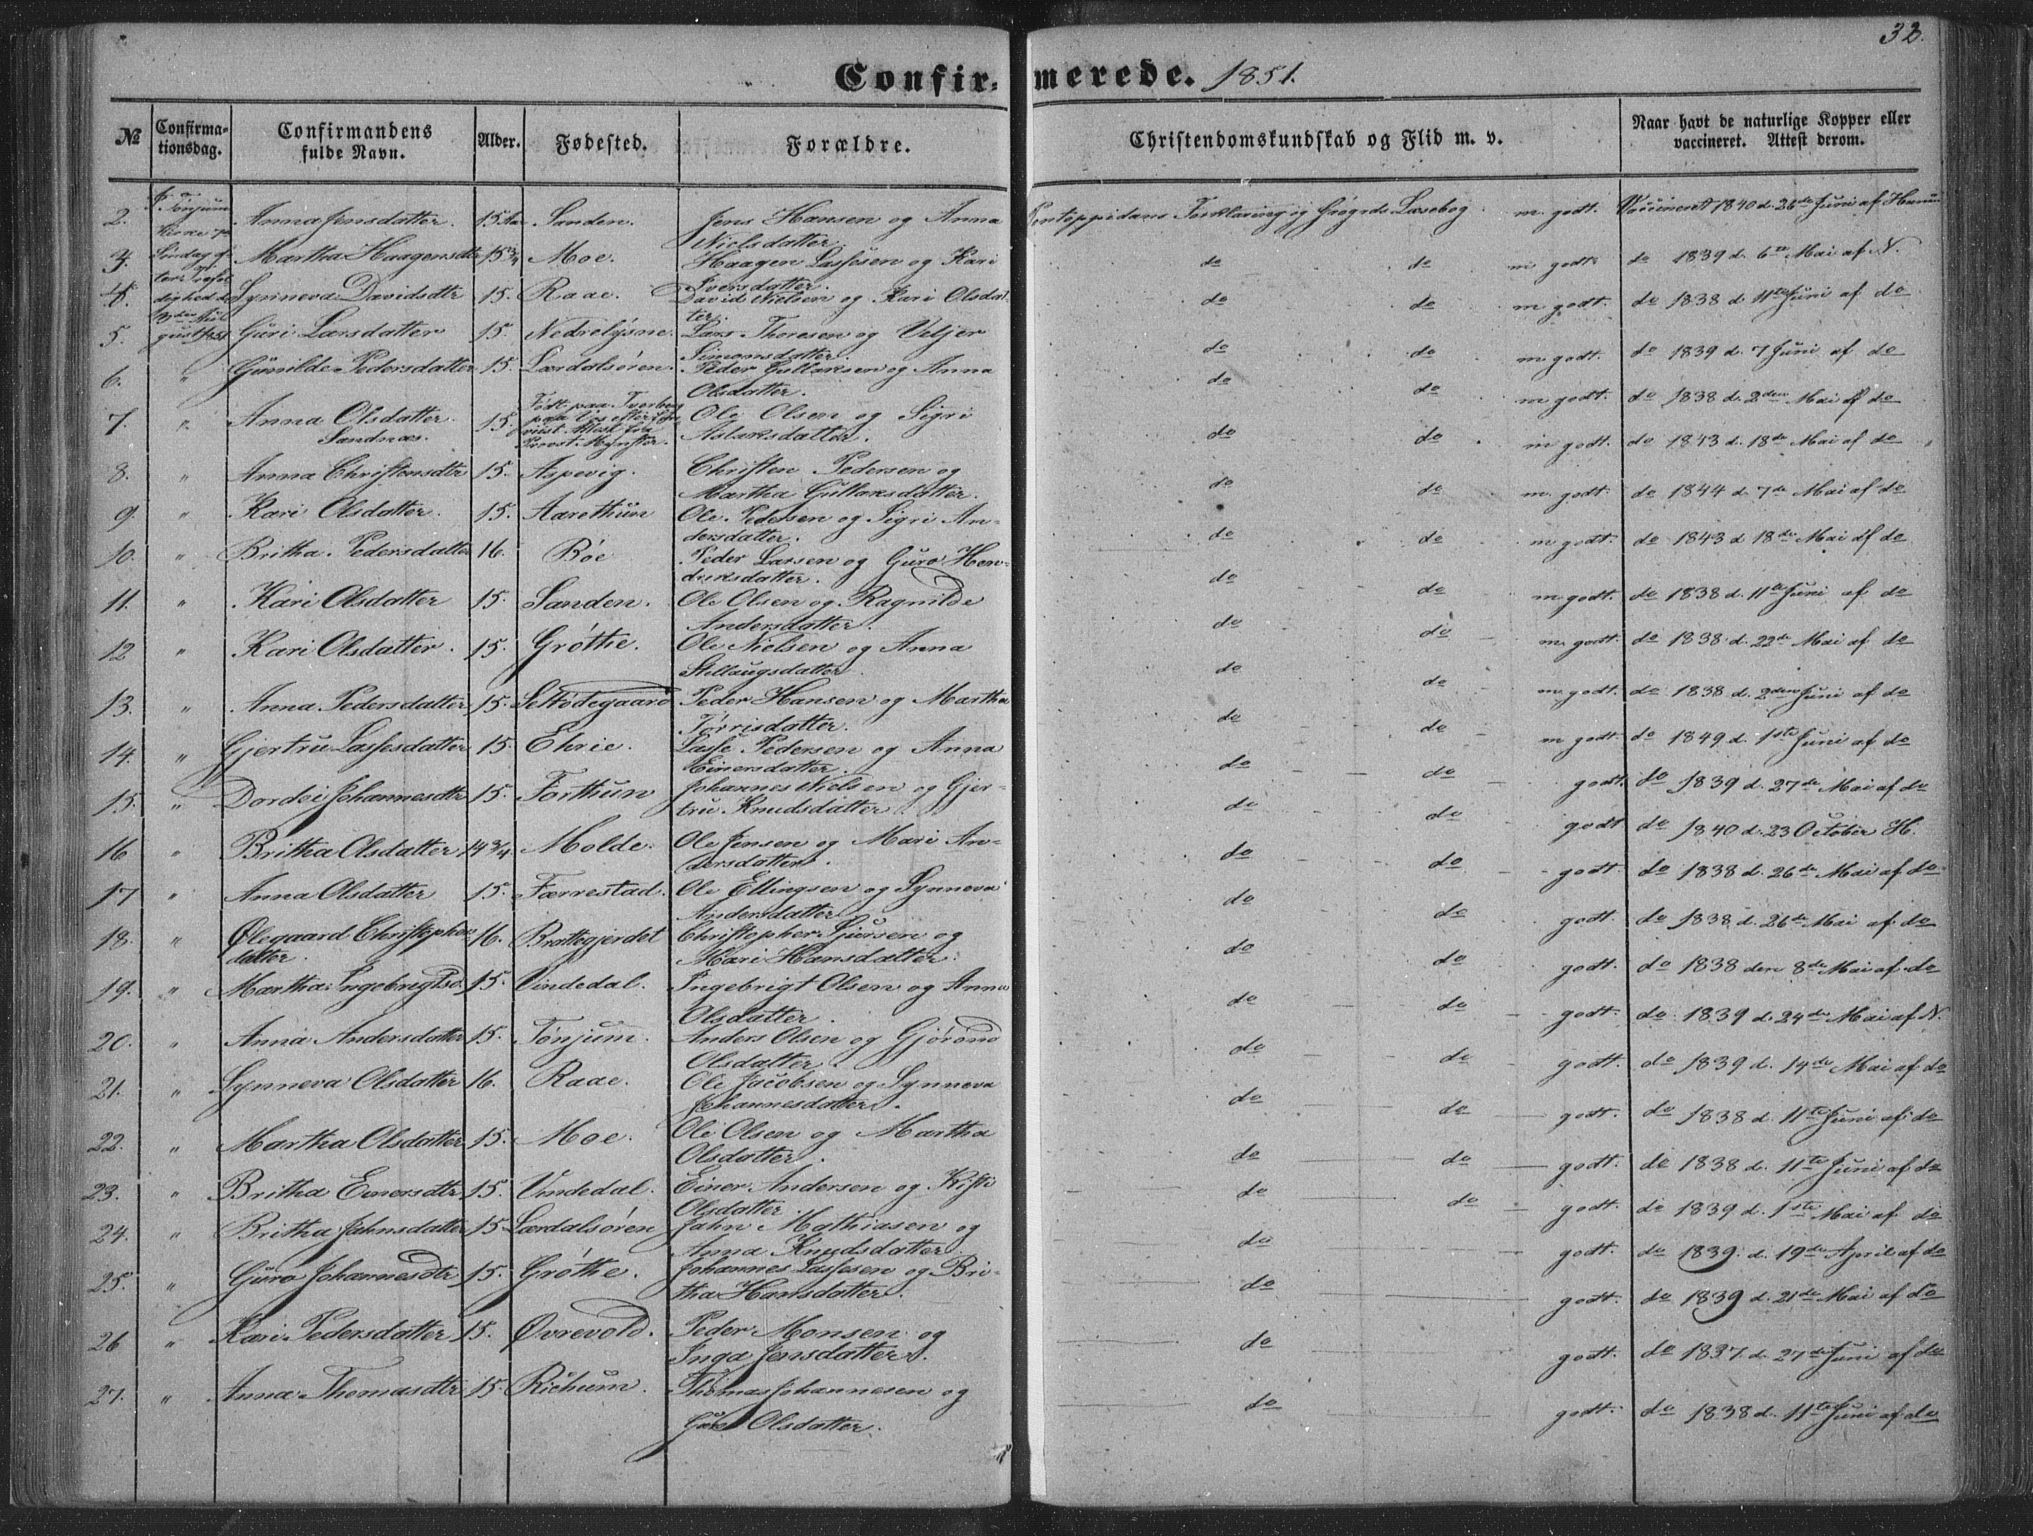 32.
Confirmerede. 1851.
№ Confirmationsdag. Confirmandens fulde Navn. Alder. Fødested. Forældre. Christendomskundskab og Flid m. v. Naar havt de naturlige Kopper eller vaccineret. Attest derom.
2. Tønjum Kirke Anna Jensdatter 15 Aar Sanden. Jens Hansen og Anna Nielsdatter Pontoppidans Forklaring og Grøgrds Læsebog m. godt. Vaccineret 1840 d. 26de Juni af
3. Søndag Martha Haagensdtr 15 3/4 Moe. Haagen Lassesen og Kari Iversdatter. do do m godt do 1839 d. 6te Mai af N.
4. Synneva Davidsdtr 15. Raae. David Nielsen og Kari Olsdatter. do do m godt. do 1838 d. 11te Juni af do
5. Guri Larsdatter 15. Nedrelysne. Lars Thoresen og Veljer Simonsdatter. do do m godt. do 1839 d. 7 Juni af do
6. " Gunilde Pedersdatter 15. Lærdalsøren. Peder Gullaksen og Anna Olsdatter. do do m godt. do 1838 d. 2den Mai af do
7. " Anna Olsdatter Sandnæs. 15. Født paa Ole Olsen og Sigri Aslaksdatter. do do m godt. do 1843 d. 18de Mai af do
8. " Anna Christensdtr 15. Aspevig. Christen Pedersen og Martha Gullaksdatter. do do m. godt. do 1844 d. 7de Mai af do
9. " Kari Olsdatter. 15. Aarethun Ole Pedersen og Sigri Andersdatter. do do m godt. do 1843 d. 18de Mai af do
10. " Britha Pedersdatter 16. Bóe Peder Larsen og Guro Hendriksdatter. do do m godt. do 1838 d. 11te Juni af do
11. " Kari Olsdatter 15. Sanden. Ole Olsen og Ragnilde Andersdatter. do do m. godt. do 1838 d. 22de Mai af do
12 " Kari Olsdatter. 15. Gróthe. Ole Nielsen og Anna Stellaugsdatter. do do m. godt. do 1838 d. 2den Juni af do
13. " Anna Pedersdatter 15. Peder Hansen og Martha Torrisdatter. do do m godt. do 1849 d. 1ste Juni af do
14. " Gjertru Lassesdatter 15. Ehrie. Lasse Pedersen og Anna Einersdatter. do do godt. do 1839 d. 27de Mai af do
15. " Dordei Johannesdtr 15. Forthun Johannes Nielsen og Gjertru Knudsdatter. do do godt do 1840 d. 23 October H.
16 " Britha Olsdatter 14 3/4 Molde. Ole Jensen og Mari Andersdatter. do do godt. do 1838 d. 26de Mai af do
17 " Anna Olsdatter 15. Færrestad. Ole Ellingsen og Synneva Andersdatter do do godt. do 1838 d. 26de Mai af do
18. " Ølegaard Christophersdatter. 16. Brattegjerdet Christopher Siursen og Mari Hansdatter. do do godt. do 1838 den 8de Mai af do
19. " Martha Ingebrigtsd. 15. Vindedal. Ingebrigt Olsen og Anna Olsdatter. do do godt. do 1839 d. 24de Mai af N.
20. " Anna Andersdatter 15. Tønjum. Anders Olsen og Gjórond Olsdatter. do do godt. do 1839 d. 14de Mai af do
21. " Synneva Olsdatter 16. Raae. Ole Jacobsen og Synneva Johannesdatter. do do godt. do 1838 d. 11te Juni af do
22. " Martha Olsdatter 15. Moe. Ole Olsen og Martha Olsdatter. do do godt. do 1838 d. 11te Juni af do
23. " Britha Einersdtr 15. Vindedal. Einer Andersen og Kisti Olsdatter do do godt. do 1839 d. 1ste Mai af do
24. " Britha Jahnsdatter 15. Lærdalsøren Jahn Mathiasen og Anna Knudsdatter do godt. do 1839. d. 19de April af do
25. " Guro Johannesdtr 15. Gróthe. Johannes Lassesen og Britha Hansdatter. do godt. do 1839 d. 21de Mai af do
26 " Kari Pedersdatter 15. Øvrevold. Peder Monsen og Inga Jensdatter. do godt. do 1837. d. 27de Juni af do
27. " Anna Thomasdtr 15. Richum. Thomas Johannesen og Guro Olsdatter. do godt. do 1838 d. 11te Juni af do